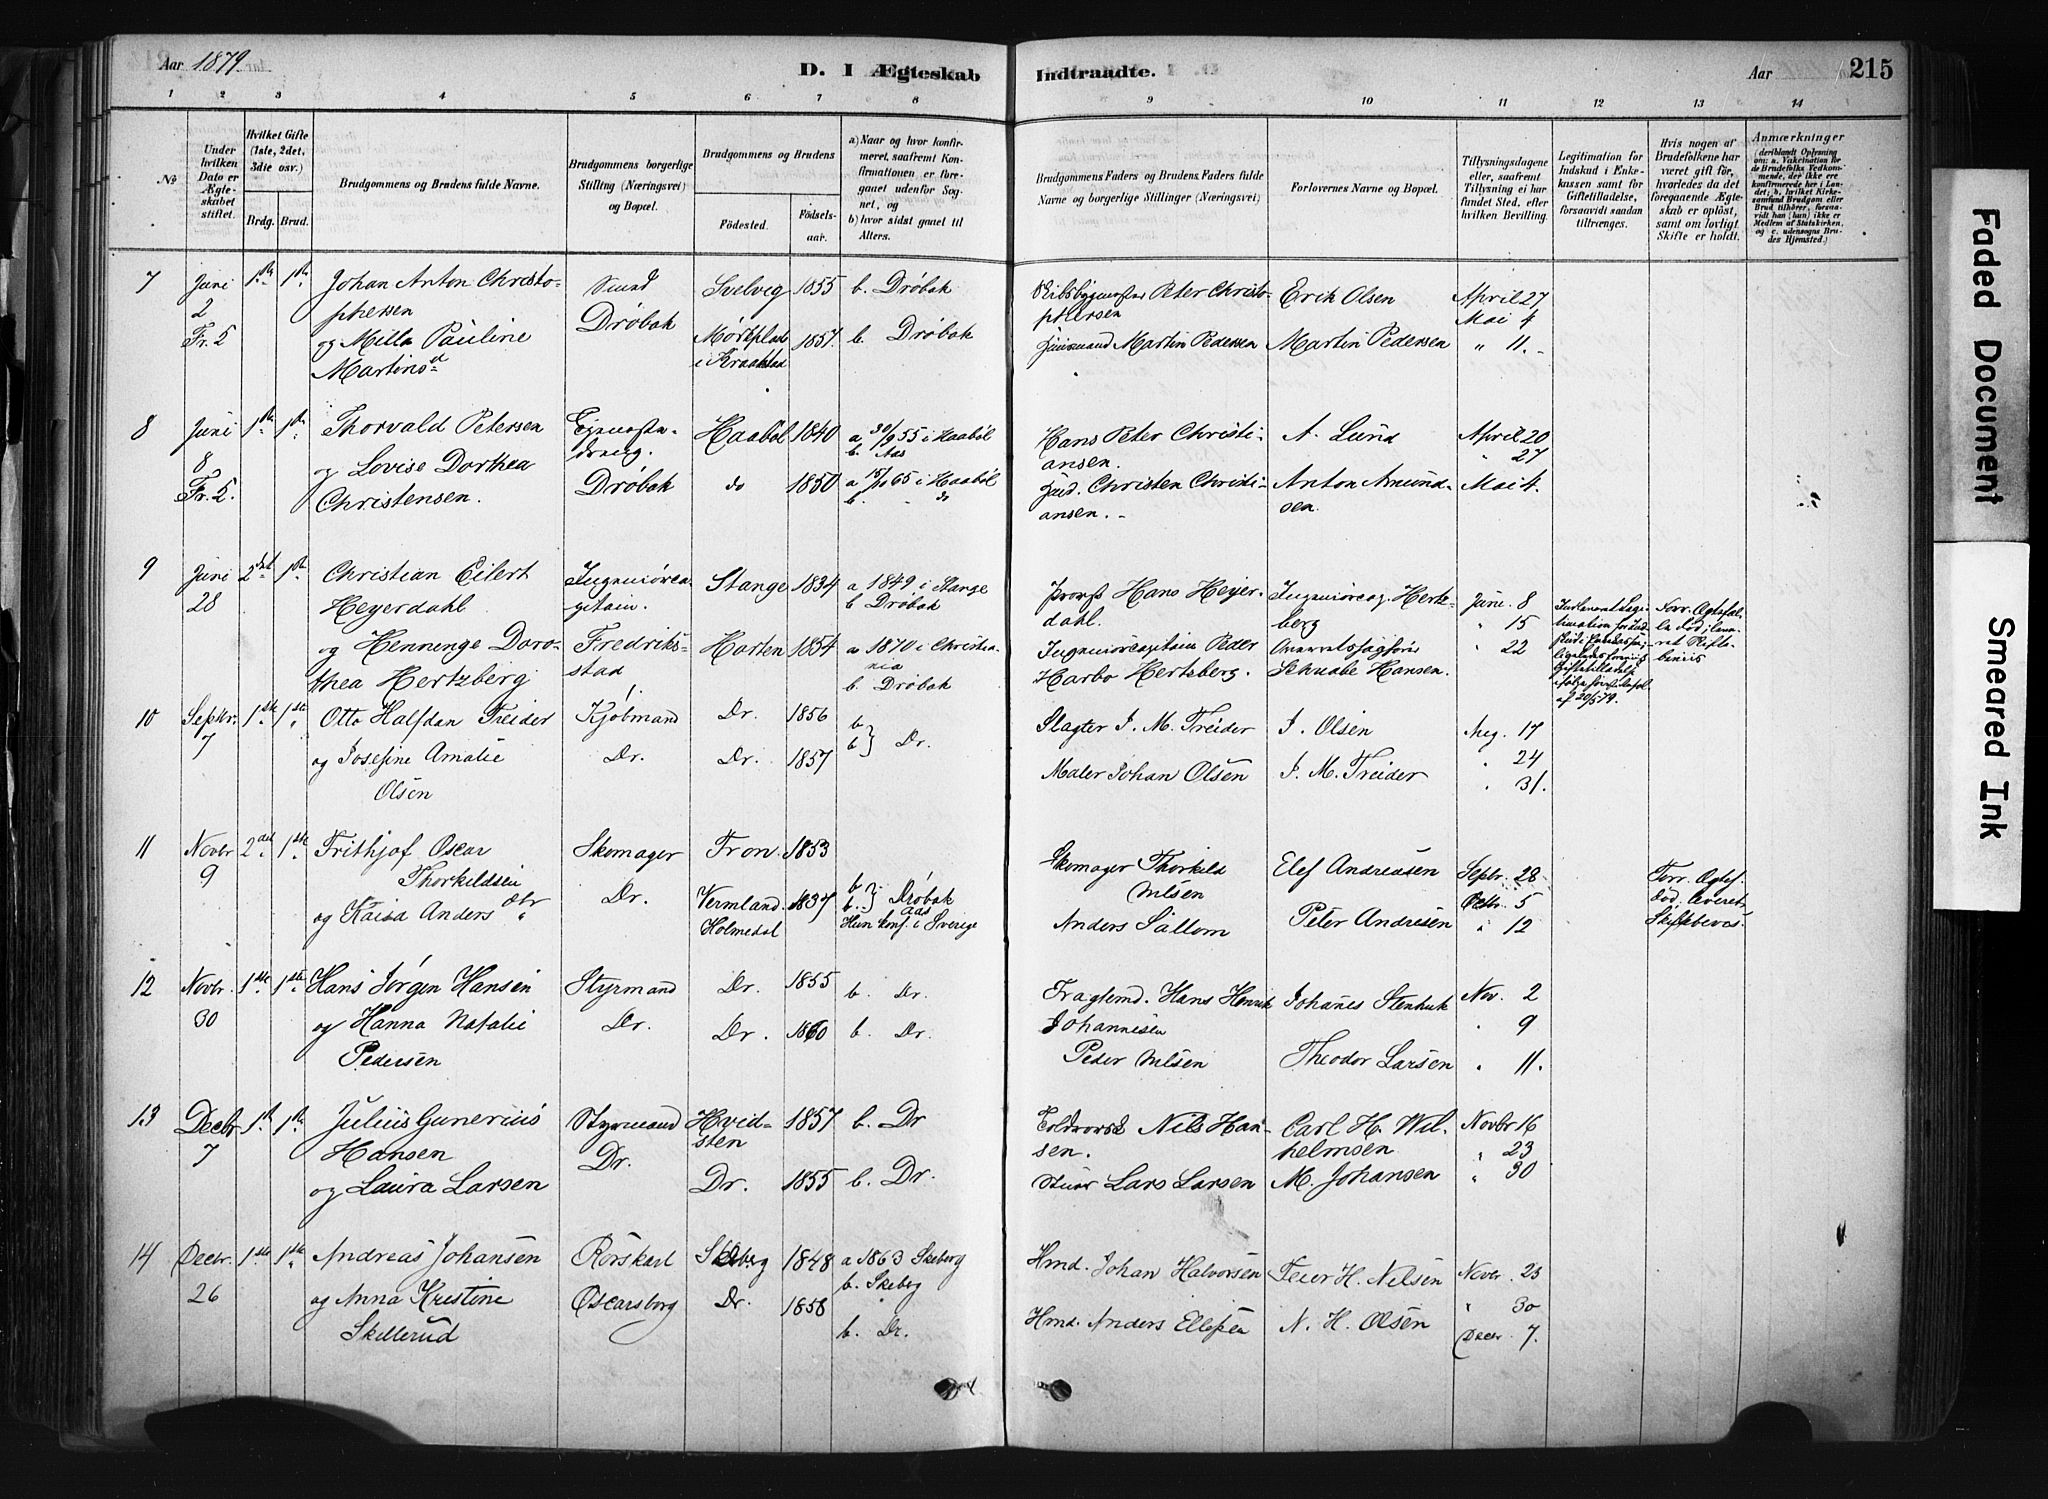 Aar 1879.
D. I Ægteskab
Indtraadte.
Aar
215
1 2 3 4 5 6 7 8 9 10 11 12 13 14
№
Under hvilken Dato er Ægteskabet stiftet.
Hvilket Gifte (1ste, 2det, 3die osv.)
Brdg. Brud.
Brudgommens og Brudens fulde Navne.
Brudgommens borgerlige Stilling (Næringsvei) og Bopæl.
Brudgommens og Brudens
Fødested. Fødselsaar.
a) Naar og hvor konfirmeret, saafremt Konfirmationen er foregaaet udenfor Sognet, og
b) hvor sidst gaaet til Alters.
Brudgommens Faders og Brudens Faders fulde Navne og borgerlige Stillinger (Næringsvei)
Forlovernes Navne og Bopæl.
Tillysningsdagene eller, saafremt Tillysning ei har fundet Sted, efter hvilken Bevilling.
Legitimation for Indskud i Enkekassen samt for Giftetilladelse, forsaavidt saadan tiltrænges.
Hvis nogen af Brudefolkene har været gift før, hvorledes da det foregaaende Ægteskab er opløst, samt om lovligt Skifte er holdt.
Anmærkninger
(deriblandt Oplysning om: a. Vakcination for de Brudefolks Vedkommende, der ikke ere konfirmerede her i Landet; b. hvilket Kirkesamfund Brudgom eller Brud tilhører, forsaavidt han (hun) ikke er Medlem af Statskirken, og c. udensogns Brudes Hjemsted.)
7 Juni 2 Fr. 5 1ste 1ste
Johan Anton Christophersen
og Milla Pauline Martinsd
Smed Drøbak
Svelvig 1855 b. Drøbak
Mørkplad i Kraakstad 1857. b. Drøbak
Skibsbygmester Peter Christophersen
Huusmand Martin Pedersen
Erik Olsen
Martin Pedersen
April 27
Mai 4
" 11.
8 Juni 8 Fr. 5. 1ste 1ste
Thorvald Petersen
og Lovise Dorthea Christensen.
Drøbak
Haaböl 1840 a 30/9 55 i Haaböl
b. Aas
do 1850 a 15/10 65 i Haaböl
b. " do
Hans Peter Christiansen.
Huusmd. Christen Christiansen.
A. Lund
Anton Amundsen.
April 20
" 27
Mai 4.
9 Juni 28 2det 1ste
Christian Eilert Heyerdahl
og Henninge Dorothea Hertzberg
Ingeniörcapitain.
Fredriksstad
Stange 1834 a 1849 i Stange
b Drøbak
Horten 1854 a 1870 i Christiania
b. Drøbak
Provst Hans Heyerdahl.
Ingeniörcapitain Peder Harbo Hertzberg.
Ingeniörcap. Hertzberg
Overretssagförer Schwabe Hansen.
Juni 8
" 15
" 22
10 Septbr. 7 1ste 1ste
Otto Halfdan Treider
og Josefine Amalie Olsen
Kjöbmand Dr.
Dr. 1856 b
Dr. 1857 b } Dr.
Slagter J. M. Treider
Maler Johan Olsen
J. Olsen
J. M. Treider
Aug. 17
" 24
" 31.
11 Novbr 9 2det 1ste
Frithjof Oscar Thorkildsen
og Kaisa Andersdtr
Skomager Dr.
Fron 1853
Vermland Holmedal 1837 b b. } Drøbak
Hun konf. i Sverige
Skomager Thorkild Nilsen
Anders Sällom
Elef Andreasen
Peter Andresen
Septbr. 28
Octbr. 5
" 12
Forr. Ægtef. död. Skiftebevis.
12 Novbr. 30 1ste 1ste
Hans Jörgen Hansen
og Hanna Natalie Pedersen
Styrmand Dr.
Dr. 1855 b. Dr.
Dr. 1860 b. Dr.
Fragtemd. Hans Henrik Johannesen
Peder Nilsen
Johanes Stenhuk
Theodor Larsen
Nov. 2
" 9
" 11.
13 Decbr 7 1ste 1ste
Julius Gunerius Hansen
og Laura Larsen
Styrmand Dr.
Hvidsten 1857 b. Dr
Dr. 1855 b. Dr.
Nils Hansen.
Lars Larsen
Carl H. Wilhelmsen
M. Johansen
Novbr 16
" 23
" 30
14 Decbr. 26 1ste 1ste
Andreas Johansen
og Anna Kristine Skillerud
Rörskarl Oscarsborg
Skeberg 1848 a 1863 Skeberg
b. Skeberg
Dr. 1858 b. Dr.
Hmd. Johan Halvorsen
Hmd. Anders Ellefsen
Feier H. Nilsen
N. H. Olsen
Novbr. 23
" 30
Decbr 7.
Faded Document
Smeared Ink